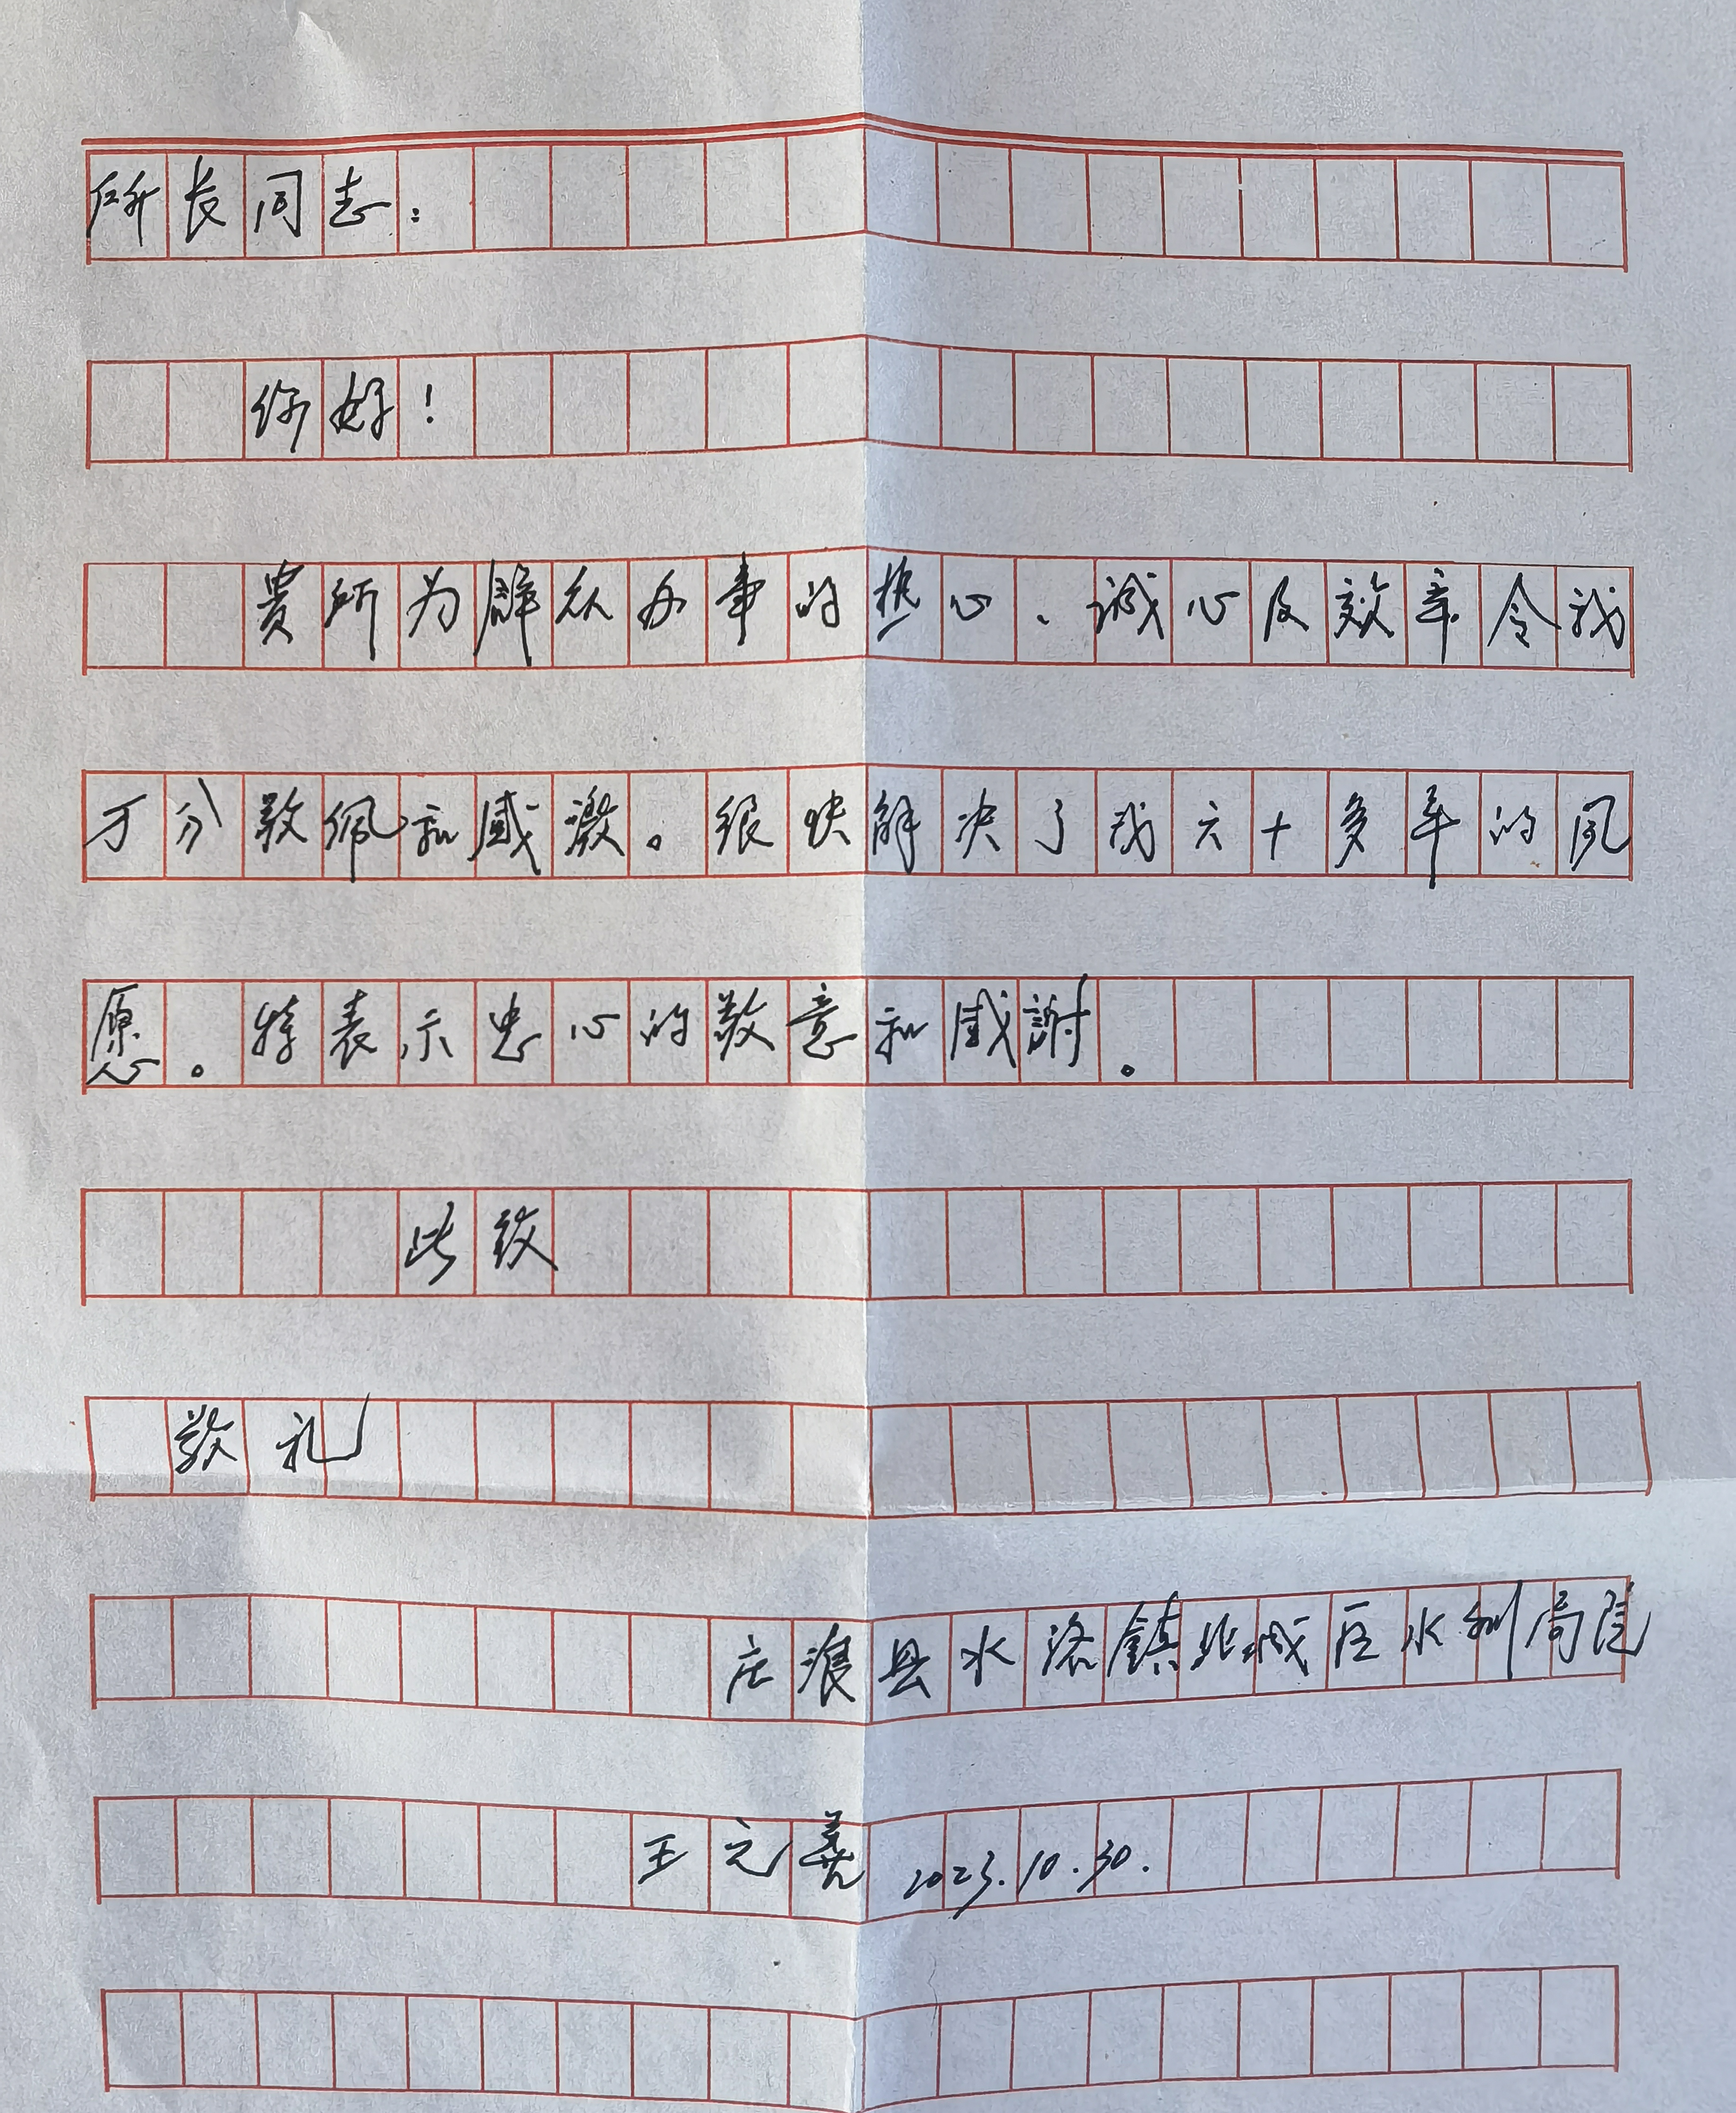 所长同志：
你好！
贵所为群众办事的热心、诚心及效率令我
万分敬佩和感激。很快解决了我六十多年的风
愿。特表示忠心的敬意和感謝。
此致
敬礼
庄浪县水洛鎮北城区水利局院
王元義 2023.10.30.